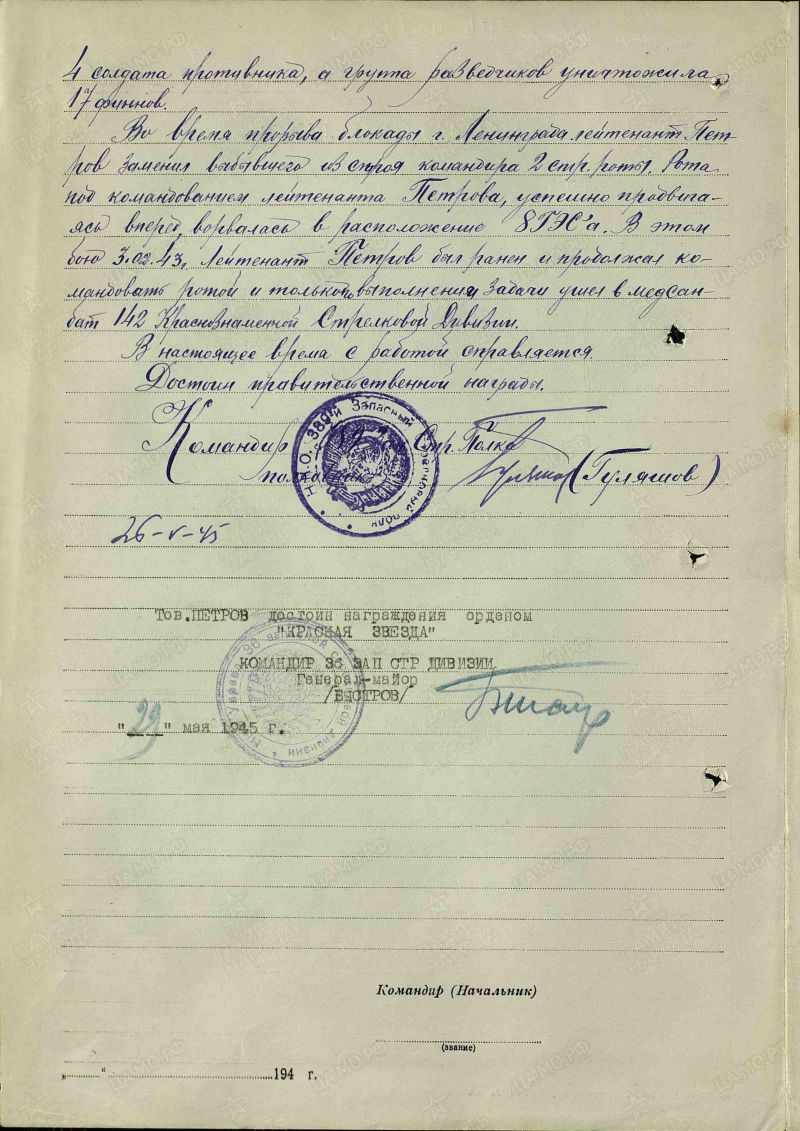 4 солдата противника, а группа разведчиков уничтожила
17 финнов.
Во время прорыва блокады г. Ленинграда лейтенант Пет
ров заменил выбывшего из строя командира 2 стр. роты. Рота
под командованием лейтенанта Петрова, успешно продвига-
ясь вперед, ворвалась в расположение 8 ГЭС'а. В этом
бою 3.02.43, Лейтенант Петров был ранен и продолжал ко-
мандовать ротой и только по выполнении задачи ушел в медсан-
бат 142 Краснознаменной Стрелковой Дивизии.
В настоящее время с работой справляется.
Достоин правительственной награды.
Командир 389 Стр. Полка
полковник (Гуляшов)
Н.К.О. 389й Запасный Стрелковый полк
26-V-45
Тов.ПЕТРОВ достоин награждения орденом
"КРАСНАЯ ЗВЕЗДА"
КОМАНДИР 36 ЗАП СТР ДИВИЗИИ
Генерал-майор
/БЫСТРОВ/
"29" мая 1945 г.
Командир (Начальник)
(звание)
„ " 194 г.
ЦАМО.РФ